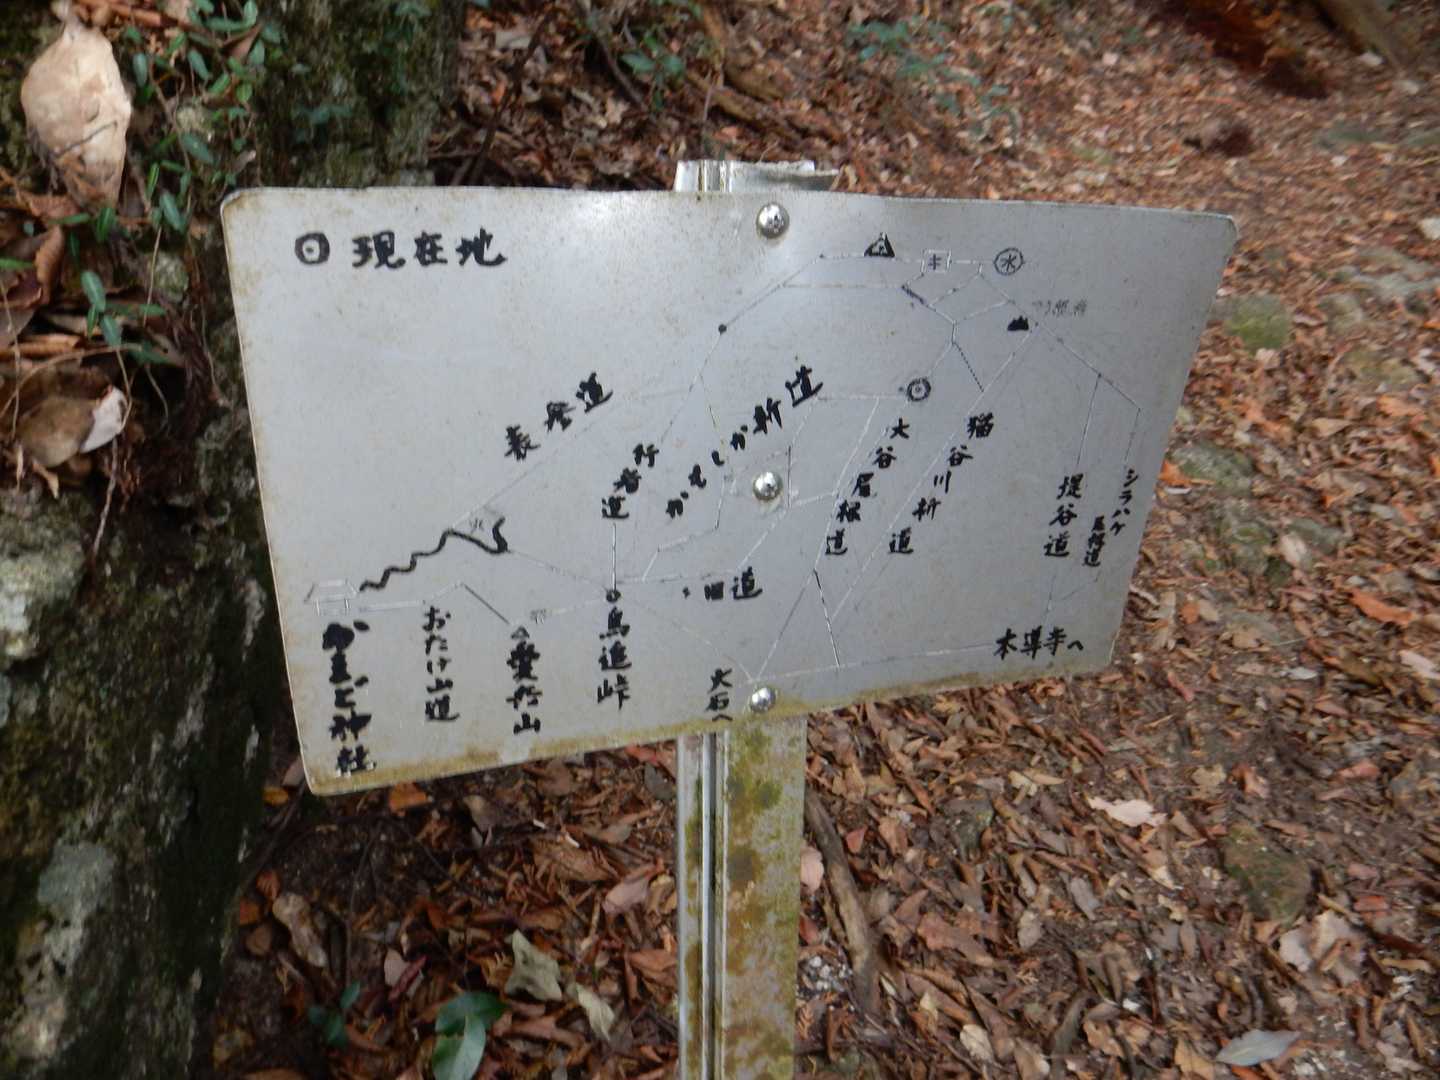 現在地
キ
水
表参道
行者道
かもしか新道
大谷尾根道
猫谷川新道
提谷道
シラハケ
尾根道
旧道
本導寺へ
かまど神社
おたけ山道
愛岳山
鳥追峠
大石へ